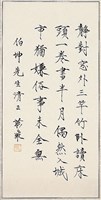 靜對窗外三竿竹卧讀床
頭一卷書半月偶然入城
市猶嫌俗事未全無
伯坤先生清正